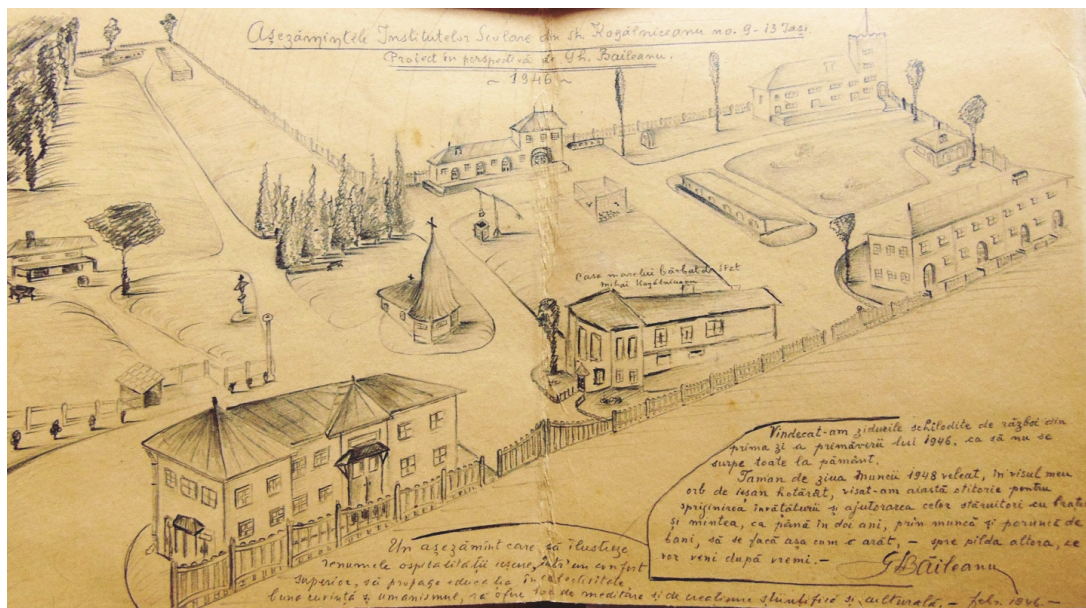 Așezămintele Institutelor Școlare din str. Kogălniceanu no. 9-13 Iași.
Proiect în perspectivă de Gh. Băileanu.
~ 1946 ~
Casa marelui bărbat de Stat
Mihai Kogălniceanu
Vindecat-am zidurile schilodite de război din
prima zi a primăverii lui 1946. ca să nu se
surpe toate la pământ.
Taman de ziua Muncii 1948 veleat, în visul meu
orb de ieșan hotărât, visat-am această ctitorie pentru
sprijinirea învățăturii și ajutorarea celor stăruitori cu brațul
și mintea, ca până în doi ani, prin muncă și poruncă de
bani, să se facă așa cum o arăt, — spre pilda altora, ce
vor veni după vremi. —
GhBăileanu
Un așezământ care, să ilustreze
renumele ospitalității ieșene, într'un confort
superior, să propage educația
buna cuviință și umanismul, să ofere loc de meditare și de creațiune științifică și culturală. — febr. 1946 —